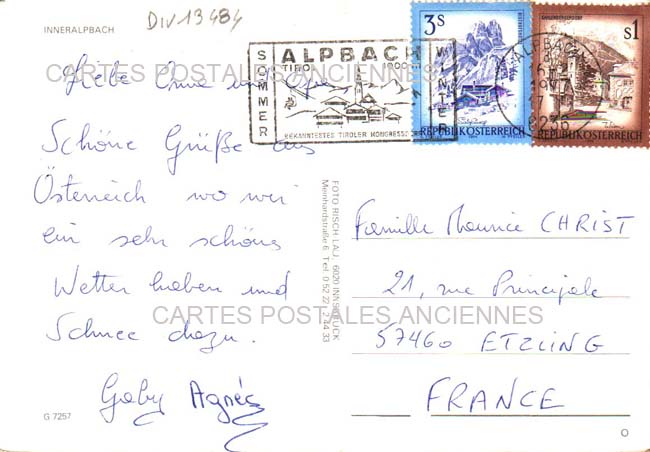 INNERALPBACH
DIV 13484
SOMMER
ALPBACH
TIROL
WINTER
BEKANNTESTES TIROLER KONGRESSDORF
3S
REPUBLIK ÖSTERREICH
S1
REPUBLIK ÖSTERREICH
ALPBACH
6236
CARTES POSTALES ANCIENNES
Liebe Oma und Opa
Schöne Grüße aus
Österreich wo wir
ein sehr schönes
Wetter haben und
Schnee dazu.
Gaby Agnès
FOTO RISCH-LAU, 6020 INNSBRUCK
Meinhardstraße 6, Tel. 0 52 22 / 2 44 33
Famille Maurice CHRIST
21, rue Principale
57460 ETZLING
FRANCE
CARTES POSTALES ANCIENNES
G 7257